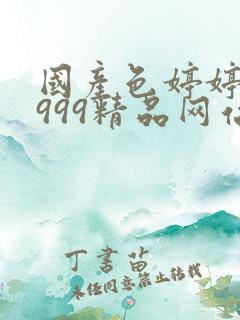 國产色婷婷
999精品网
丁書苗
未经同意禁止转载